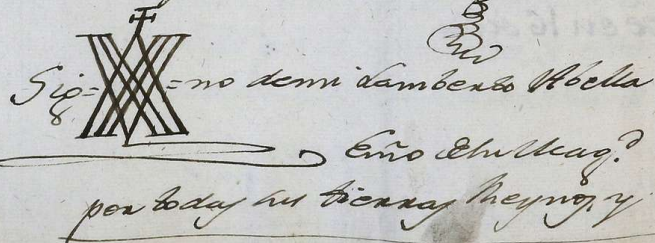 Sig= =no de mi Lamberto Abella
Esño
por todas sus tierras Reynos, y